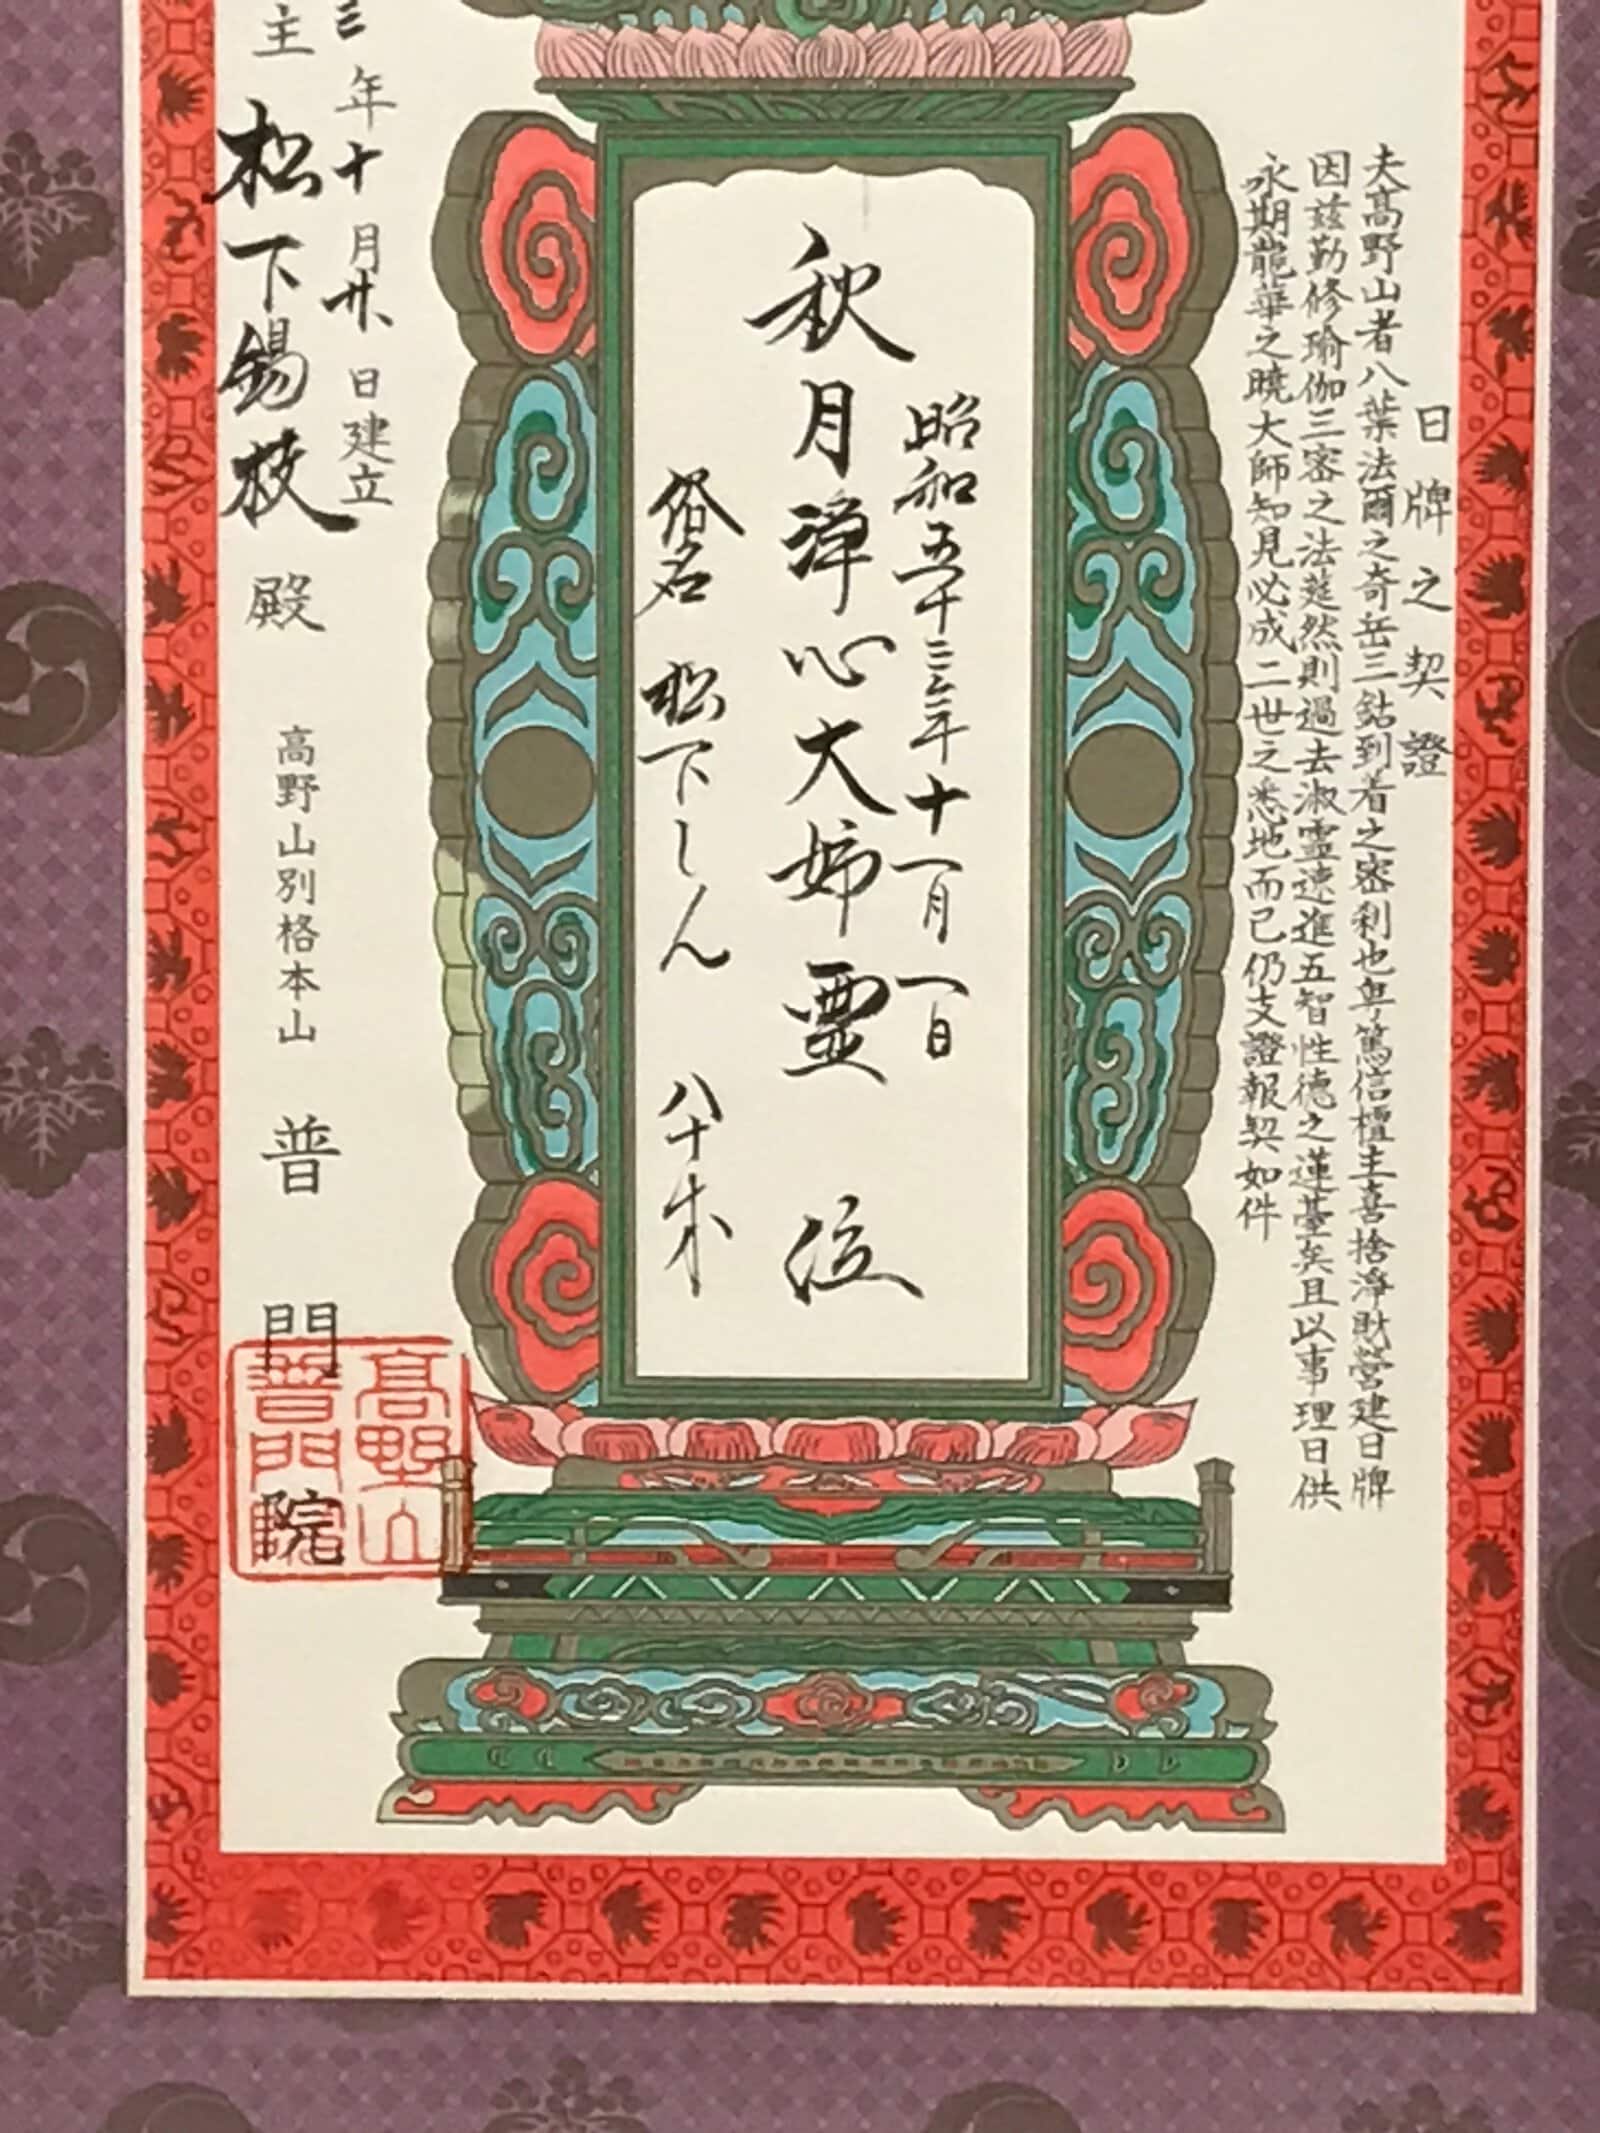 日牌之契證
夫高野山者八葉法爾之奇岳三鈷到着之密刹也卑篤信檀主喜捨淨財營建日牌
因茲勤修瑜伽三密之法莚然則過去淑靈速進五智性德之蓮臺矣且以事理日供
永期龍華之曉大師知見必成二世之悉地而已仍支證報契如件
昭和五十三年十一月一日
秋月浄心大姉霊位
俗名 松下しん 八十才
三年十月廿日建立
主 松下錫枝殿
高野山別格本山 普門院
高野山
普門院